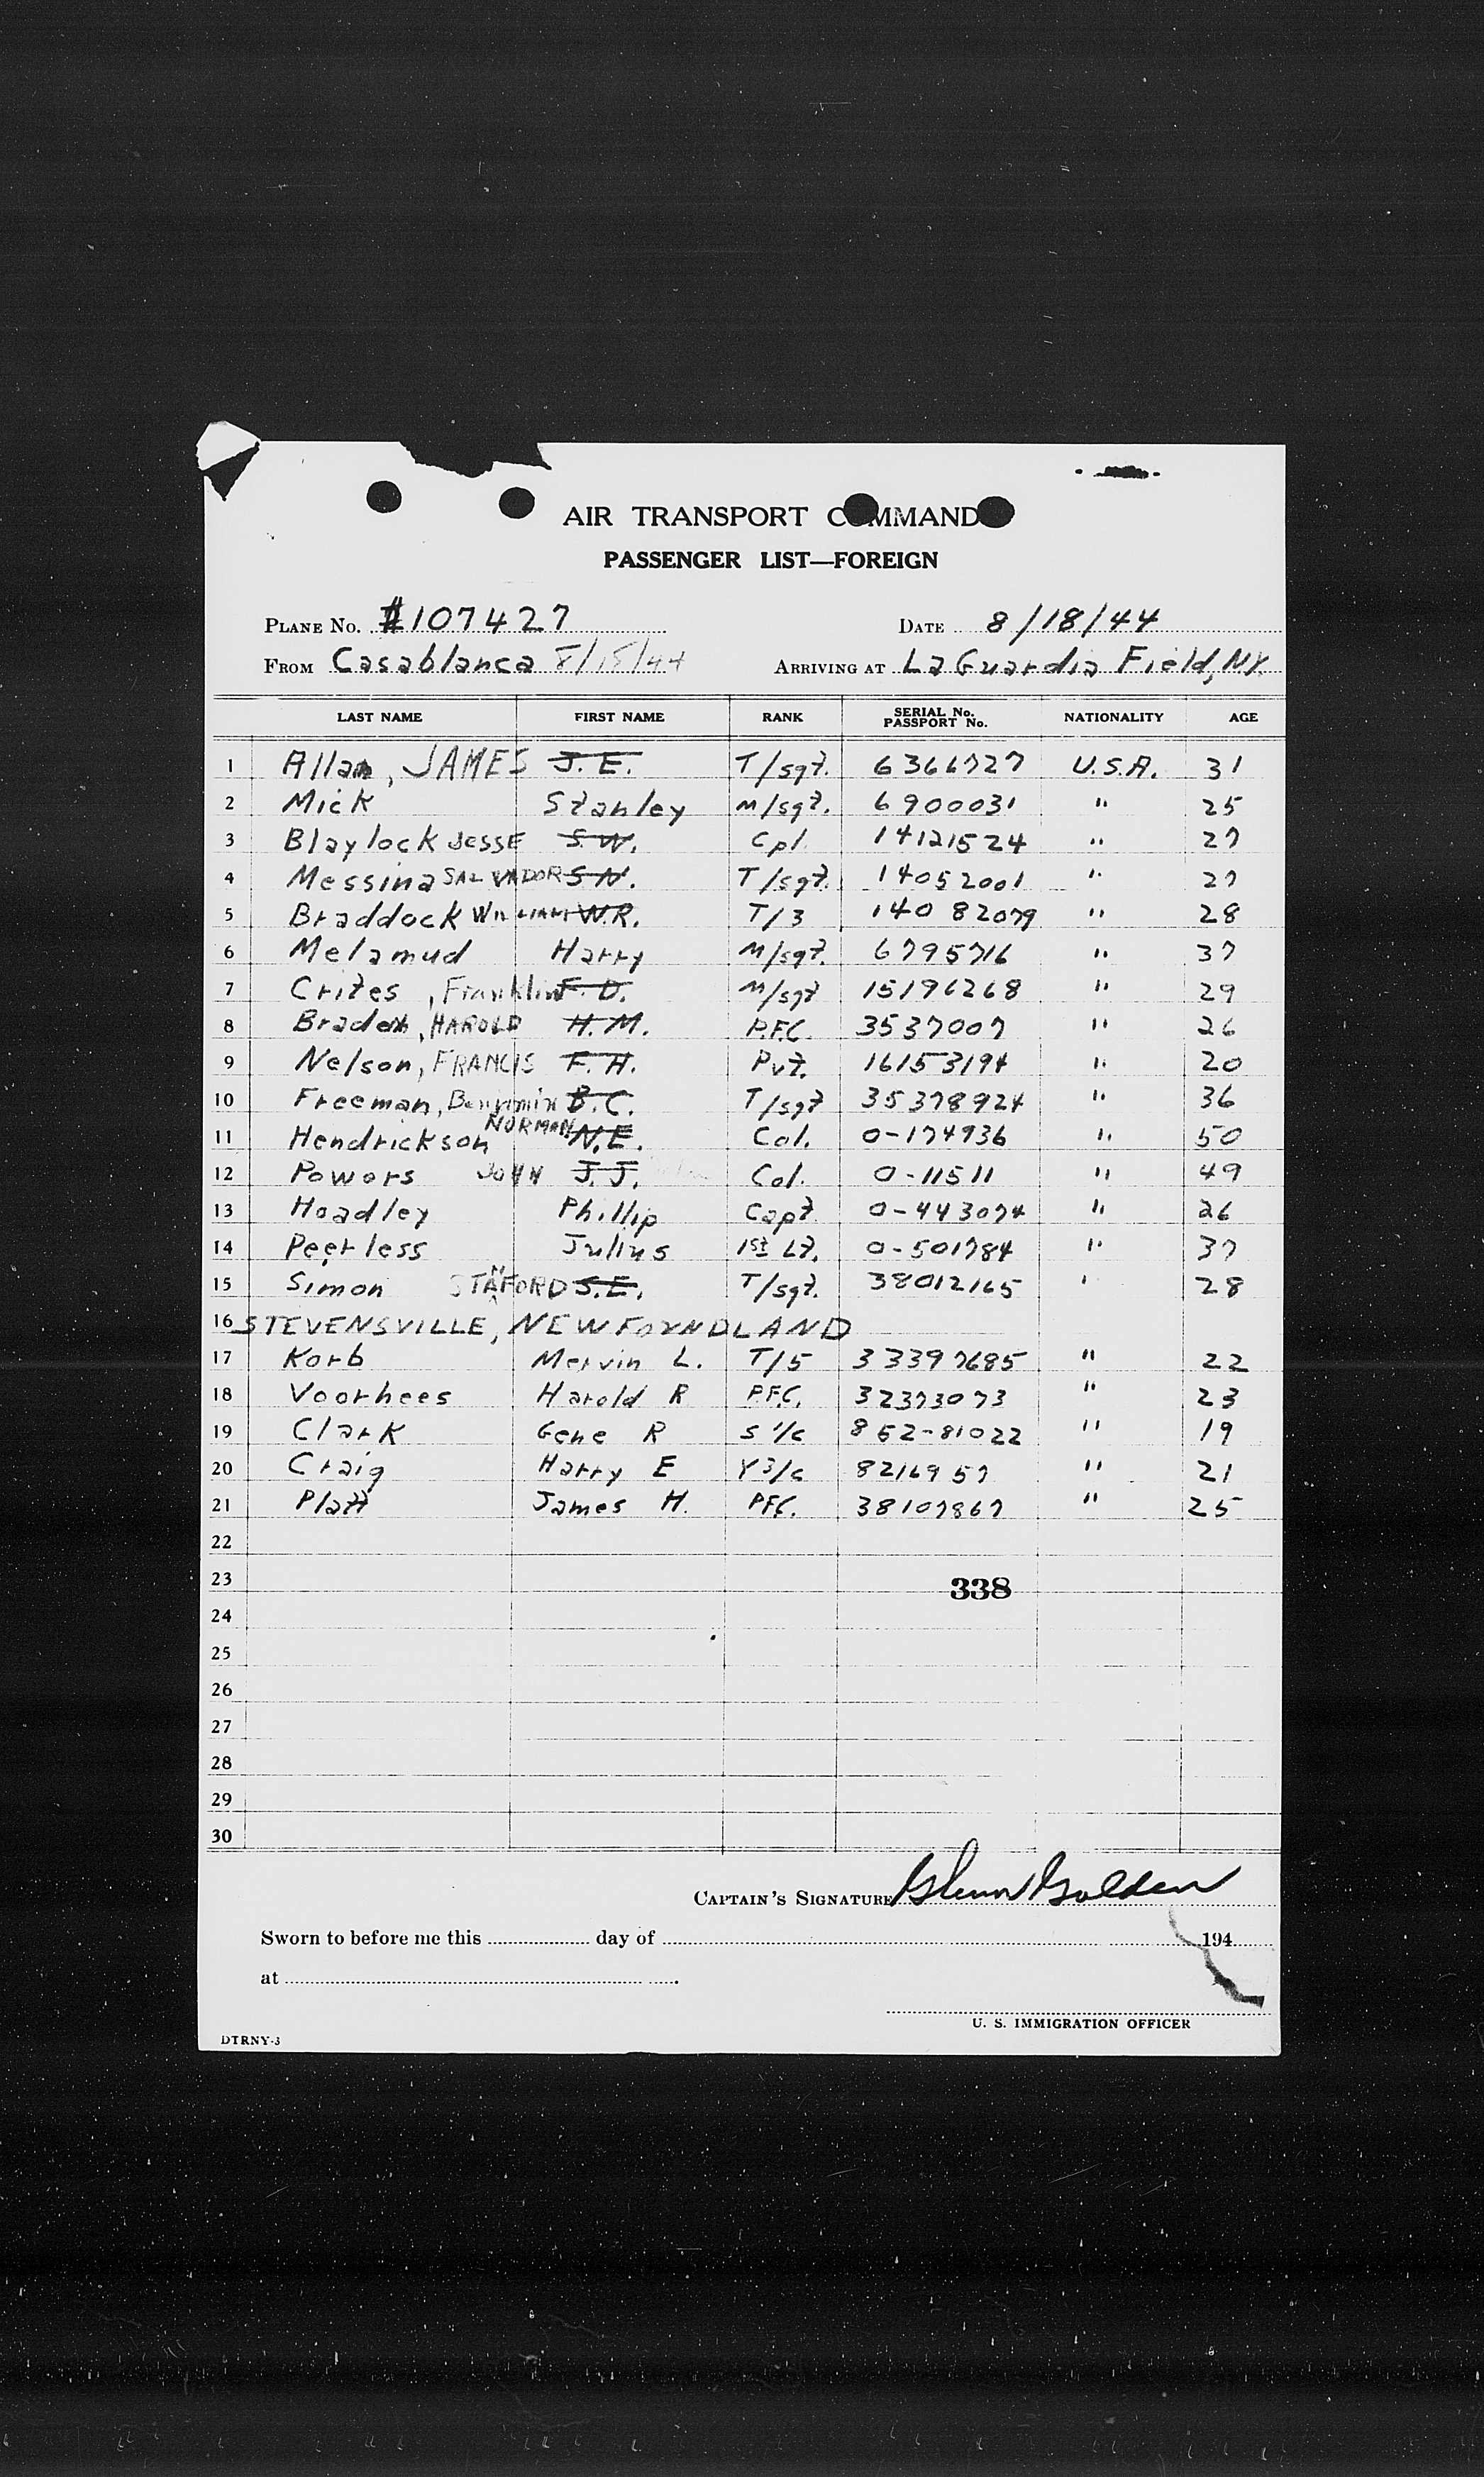 AIR TRANSPORT COMMAND
PASSENGER LIST—FOREIGN
PLANE No. #107427 DATE 8/18/44
FROM Casablanca 8/15/44 ARRIVING AT LaGuardia Field, NY.
LAST NAME FIRST NAME RANK SERIAL No. PASSPORT No. NATIONALITY AGE
1 Allan, JAMES J.E. T/sgt. 6366727 U.S.A. 31
2 Mick Stanley m/sgt. 6900031 " 25
3 Blaylock JESSE S.W. Cpl. 14121524 " 27
4 Messina SALVADOR S.N. T/sgt. 14052001 " 27
5 Braddock WILLIAM W.R. T/3 14082079 " 28
6 Melamud Harry m/sgt. 6795716 " 37
7 Crites, Franklin F.D. m/sgt 15196268 " 29
8 Braden, HAROLD H.M. P.F.C. 3537007 " 26
9 Nelson, FRANCIS F.H. Pvt. 16153194 " 20
10 Freeman, Benjimin B.C. T/sgt 35378924 " 36
11 Hendrickson NORMAN N.E. Col. 0-174936 " 50
12 Powors JOHN J.J. Col. 0-11511 " 49
13 Hoadley Phillip Capt. 0-443074 " 26
14 Peerless Julius 1st Lt. 0-501784 " 37
15 Simon STANFORD S.E. T/sgt. 38012165 " 28
16 STEVENSVILLE, NEWFOUNDLAND
17 Korb Mervin L. T/5 33397685 " 22
18 Voorhees Harold R P.F.C. 32373073 " 23
19 Clark Gene R S 1/c 862-81022 " 19
20 Craig Harry E Y 3/c 8216957 " 21
21 Platt James H. PFC. 38107867 " 25
22
23 338
24
25
26
27
28
29
30
CAPTAIN'S SIGNATURE Glenn Golden
Sworn to before me this day of 194
at
U. S. IMMIGRATION OFFICER
DTRNY-3